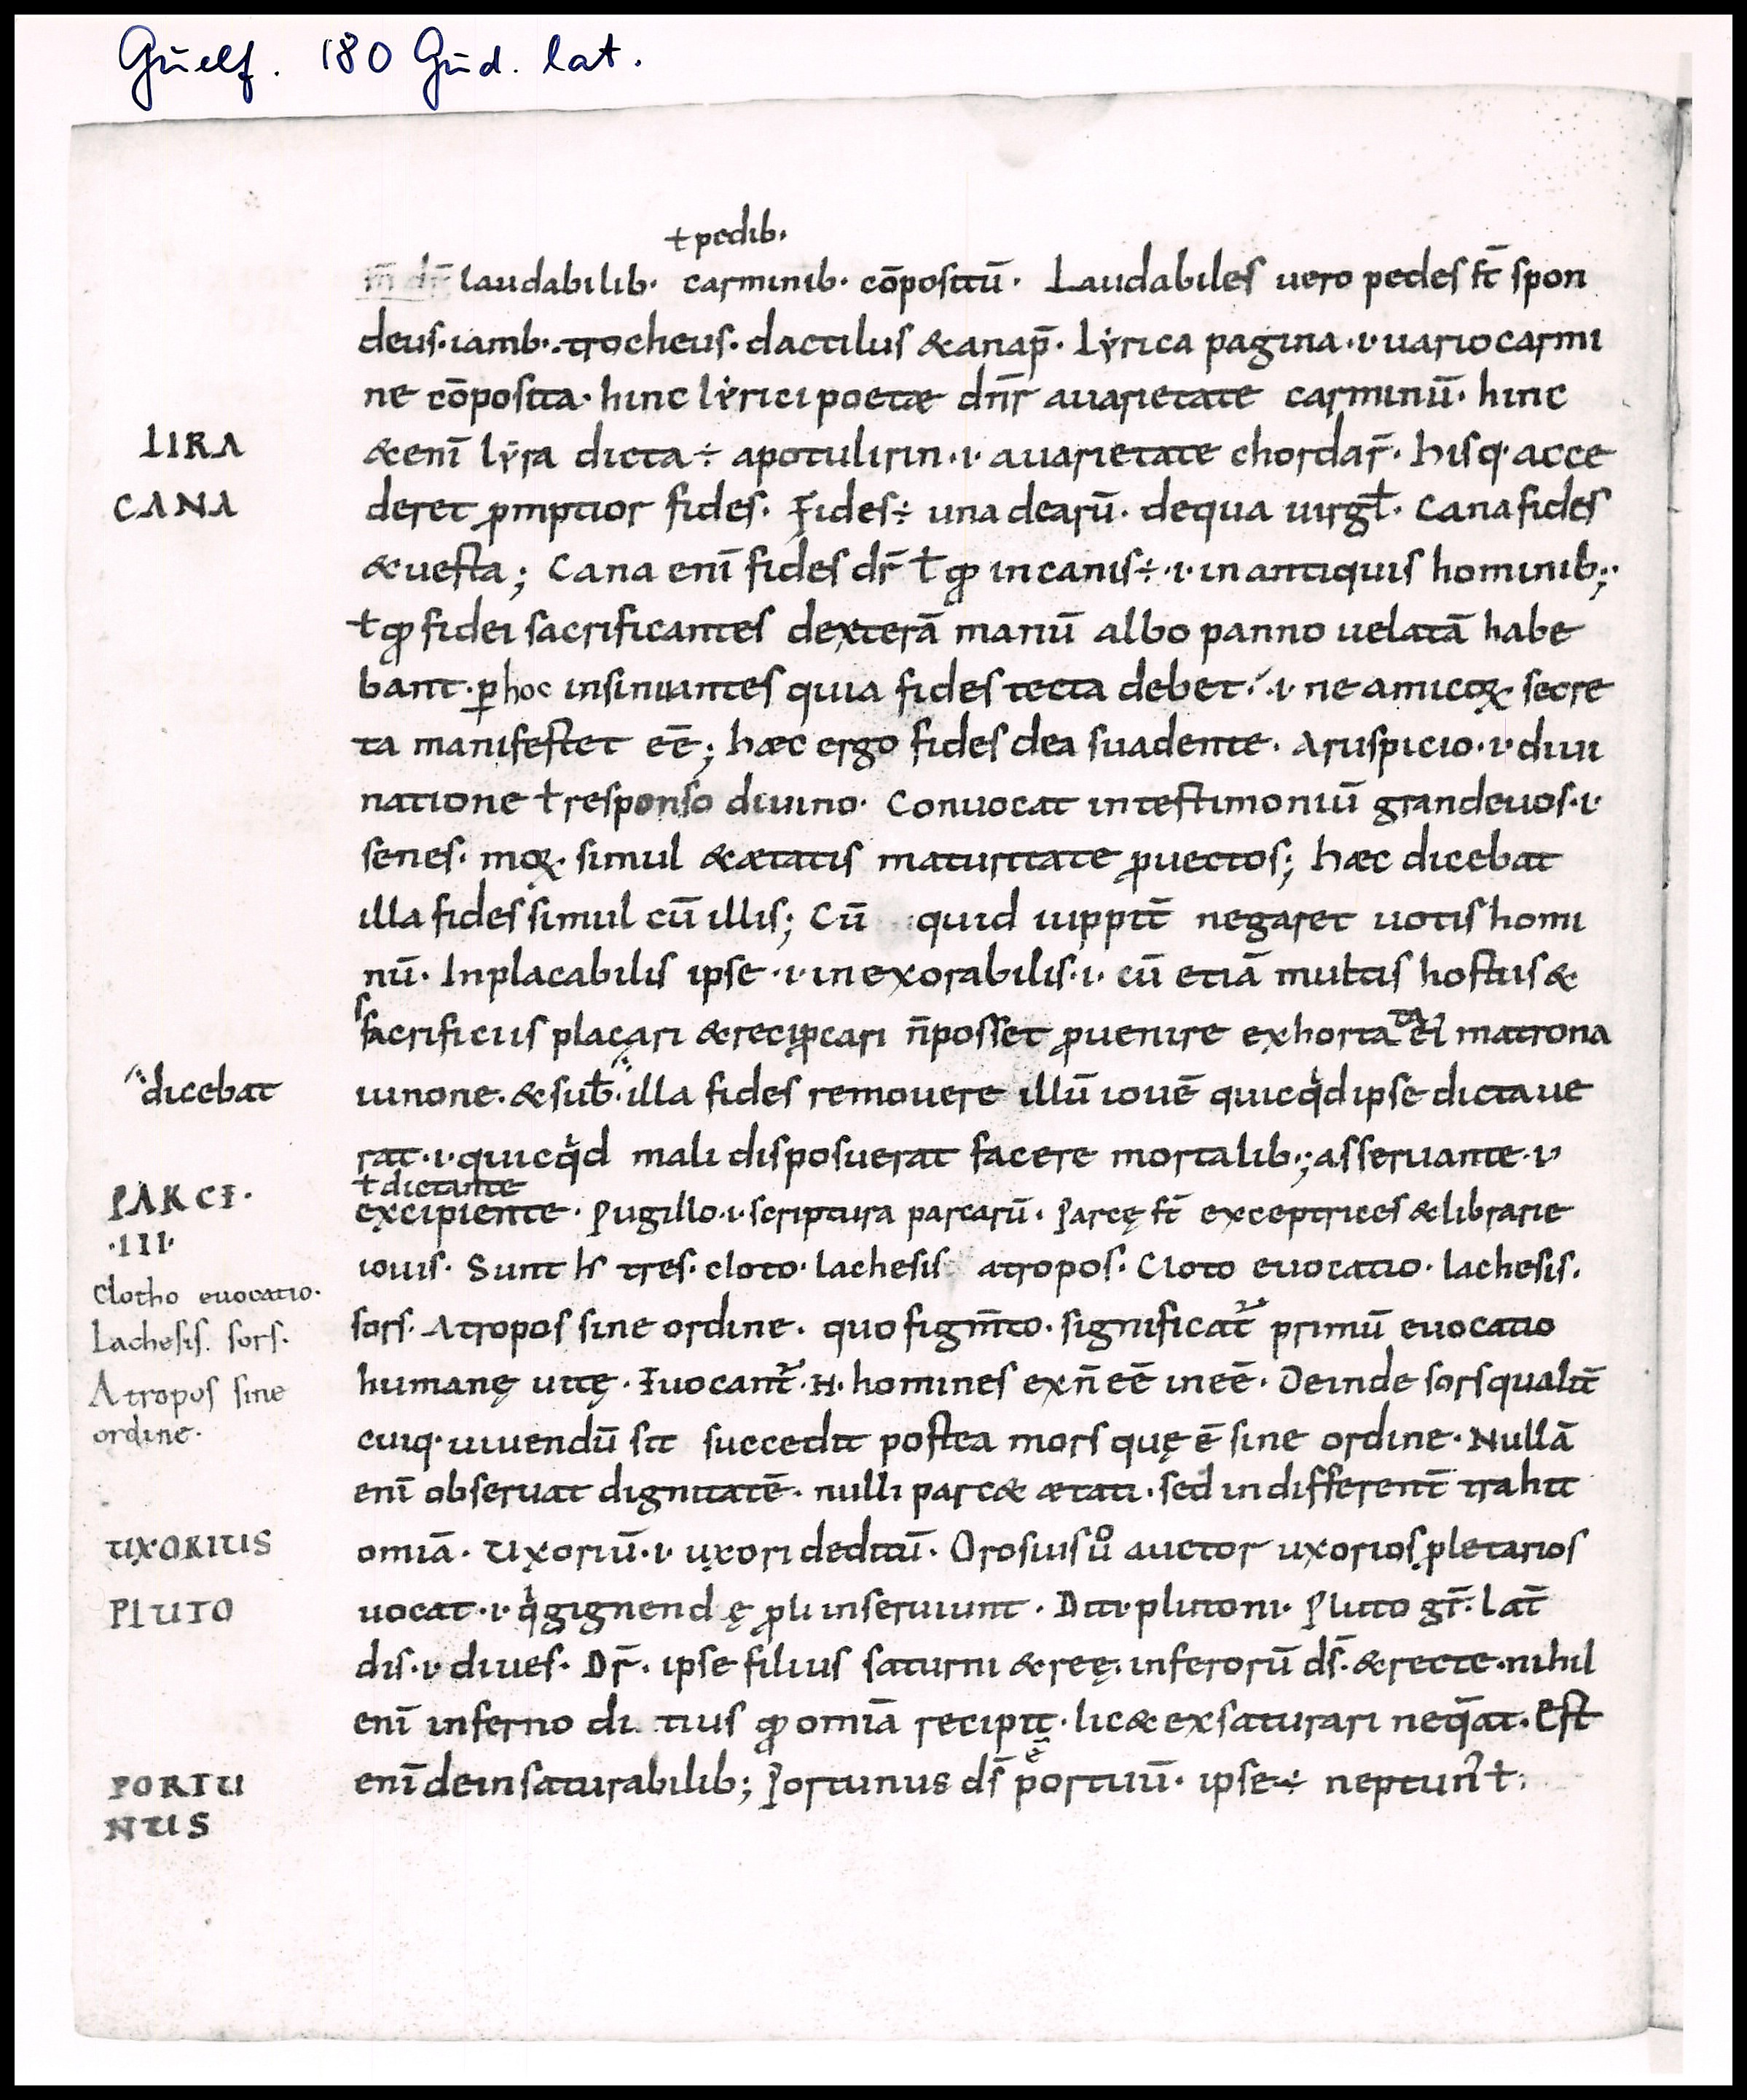 Guelf. 180 Gud. lat.
ł pedib.
m̄ dr̄ laudabilib. carminib. cōpositū. Laudabiles uero pedes st̄ spon
deus. iamb. trocheus. dactilus & anap̄. Lẏrica pagina .i. uario carmi
ne cōposita. hinc lẏrici poetæ dn̄r a uarietate carminū. hinc
LIRA
& enī lẏra dicta ÷ apotulirin .i. a uarietate chordar̄. hisq. acce
CANA
deret pmptior fides. Fides ÷ una dearū. de qua uirgł. Cana fides
& uesta; Cana enī fides dr̄ ł qp in canis ÷ .i. in antiquis hominib;
ł qp fidei sacrificantes dexterā manū albo panno uelatā habe
bant. p hoc insinuantes quia fides tecta debet .i. ne amicoꝝ secre
ta manifestet eē; hæc ergo fides dea suadente. Aruspicio .i. diui
natione ł responso diuino. Conuocat in testimoniū grandeuos .i.
senes. moꝝ. simul & ætatis maturitate puectos; hæc dicebat
illa fides simul cū illis; Cū quid iuppit̄ negaret uotis homi
nū. Inplacabilis ipse .i. inexorabilis .i. cū etiā multis hostiis &
sacrificiis placari & recipcari n̄ posset puenire exhortata ei matrona
dicebat
iunone. & sub̄. illa fides remouere illū iouē quicqd ipse dictaue
rat .i. quicqd mali disposuerat facere mortalib.; asseruante .i.
ł dictante
PARCE.
.III.
excipiente. Pugillo .i. scriptura parcarū. Parcę st̄ exceptrices & librarie
iouis. Sunt h tres. cloto. lachesis atropos. Cloto euocatio. lachesis.
Clotho euocatio.
Lachesis. sors.
Atropos sine
ordine.
sors. Atropos sine ordine. quo figm̄to. significat̄ primū euocatio
humanę uitę. Euocant̄ .N. homines ex n̄ eē in eē. Deinde sors qualit̄
cuiq. uiuendū sit succedit postea mors quę ē sine ordine. Nullā
enī obseruat dignitatē. nulli parc& ætati. sed indifferent̄ trahit
UXORIUS
omīa. Uxoriū .i. uxori deditū. Orosius ů auctor uxorios pletarios
PLUTO
uocat .i. q gignendę pli inseruiunt. Diti. plutoni. Pluto gr̄. lat̄
dis .i. diues. Dr̄. ipse filius saturni & reę. inferorū ds̄. & recte. nihil
enī inferno di tius qp omīa recipit. lic& exsaturari neq̄at. Est
PORTU
NUS
enī de insaturabilib; Portunus ds̄ portuū. ipse ÷ neptun ł.